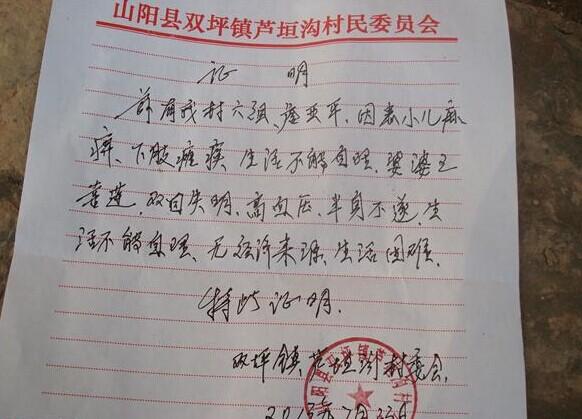 山阳县双坪镇芦垣沟村民委员会
证 明
兹有我村六组、 亚平、因患小儿麻
痹、下肢瘫痪 生活不能自理、婆婆王
喜莲、双目失明、高血压、半身不遂、生
活不能自理、无经济来源、生活困难、
特此证明.
双坪镇芦垣沟村委会.